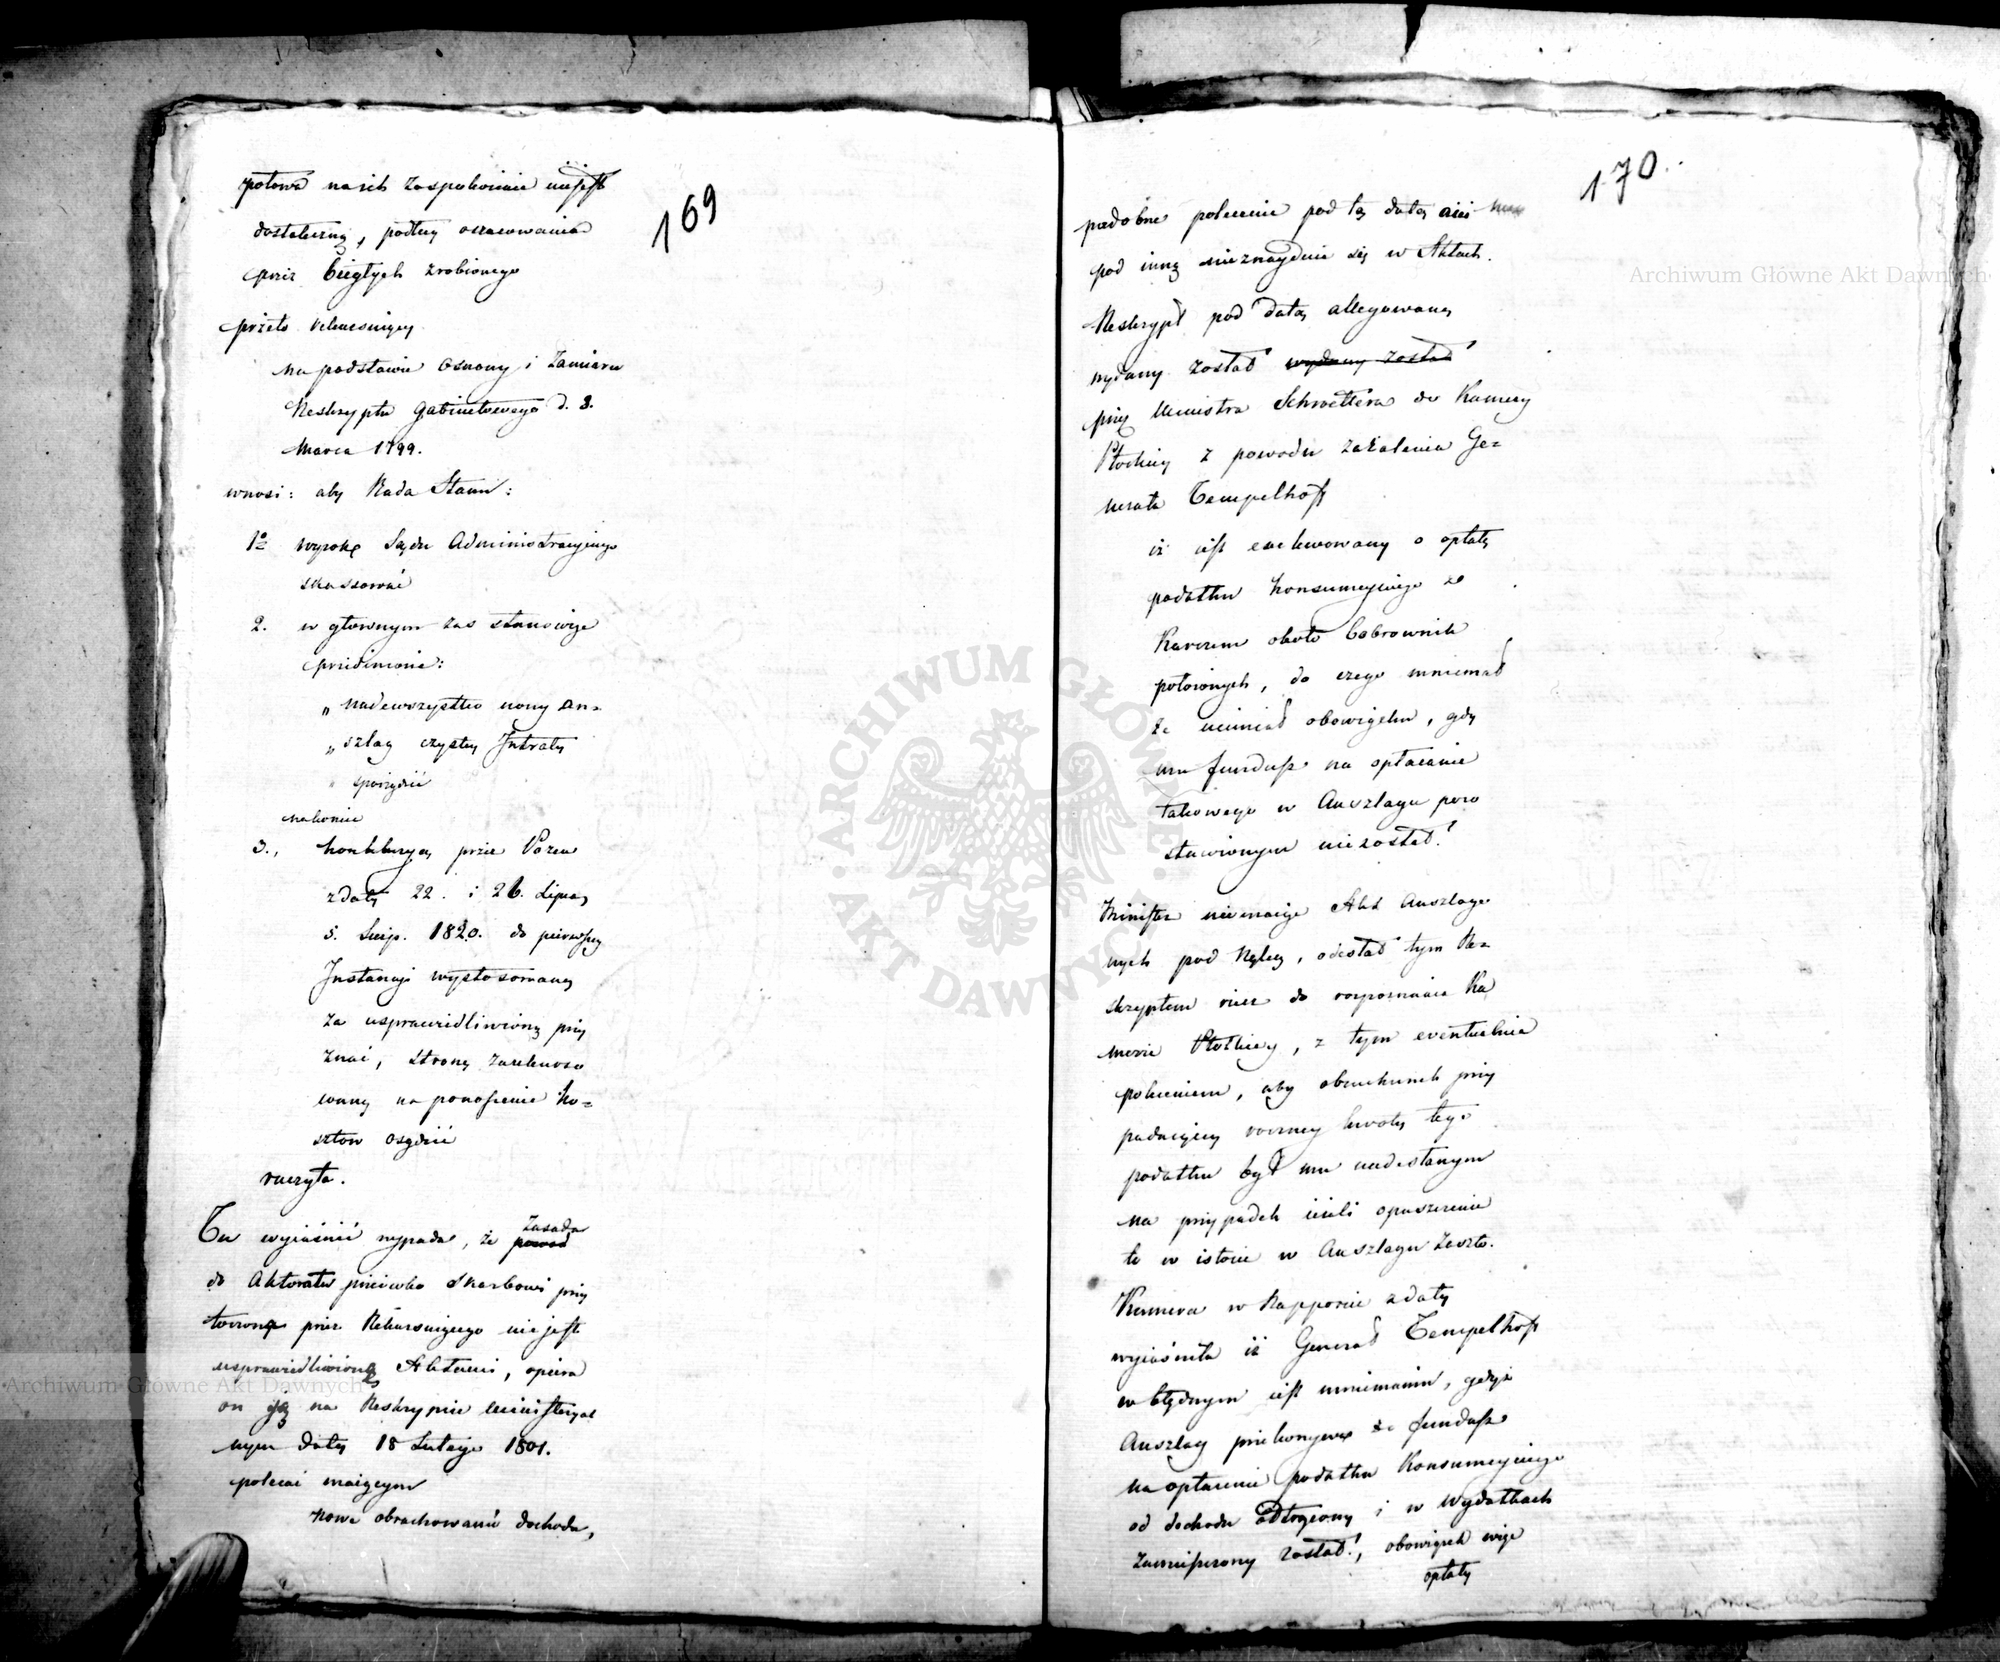 169
połowa na ich zaspokoienie nie jest
dostateczną, podług oszacowania
przez biegłych zrobionego
przeto rekursuiący
na podstawie Osnowy i Zamiaru
Reskryptu Gabinetowego d. 3.
Marca 1799.
wnosi: aby Rada Stanu:
1o wyrok Sądu Administracyinego
skassować
2. w głownym zaś stanowiąc
przedmiocie:
„ nadewszystko nowy An=
„ szlag czystey Intraty
„ sporządzić
nakoniec
3., przez Pozew
z daty 22. i 26. Lipca,
5. Sierp. 1820. do pierwszey
Instancyi wystosowaną
za usprawiedliwioną przy
znać, stronę zarekurso
waną na ponoszenie ko=
sztow osądzić
raczyła.
Tu wyiaśnić wypada, że zasada
powod
do Aktoratu przeciwko Skarbowi przy
toczona przez Rekursuiącego nie jest
usprawiedliwioną Aktami, opiera
on ią na Reskrypcie ministeryal
nym daty 18 Lutego 1801.
polecać maiącym
nowe obrachowanie dochodu,
170.
podobne polecenie pod tą datą ani
pod inną nieznayduie się w Aktach.
Reskrypt pod datą allegowaną
wydany został wydany został
przez Ministra Schroettera do Kamery
Płockiey z powodu zażalenia Ge=
nerała Tempelhoff
iż iest exekwowany o opłatę
podatku konsumcyinego z
Karczem około Bobrownik
położonych, do czego mniemał
że niemiał obowiązku, gdy
mu fundusz na opłacanie
takowego w Anszlagu pozo
stawionym niezostał.
Minister niemaiąc Akt Anszlago
wych pod ręką, odesłał tym Re=
skryptem rzecz do rozpoznania Ka
merze Płockiey, z tym eventualnie
poleceniem, aby obrachunek przy
padaiącey roczney kwoty tego
podatku był mu nadesłanym
na przypadek ieżeli opuszczenie
to w istocie w Anszlagu zaszło.
Kamera w Rapporcie z daty
wyiaśniła iż Generał Tempelhoff
w błędnym iest mniemaniu, gdyż
Anszlag przekonywa że fundusz
na opłacenie podatku Konsumcyinego
od dochodu odtrącony i w wydatkach
zamieszczony został, obowiązek więc
opłaty
Archiwum Główne Akt Dawnych
Archiwum Główne Akt Dawnych
ARCHIWUM GŁÓWNE AKT DAWNYCH